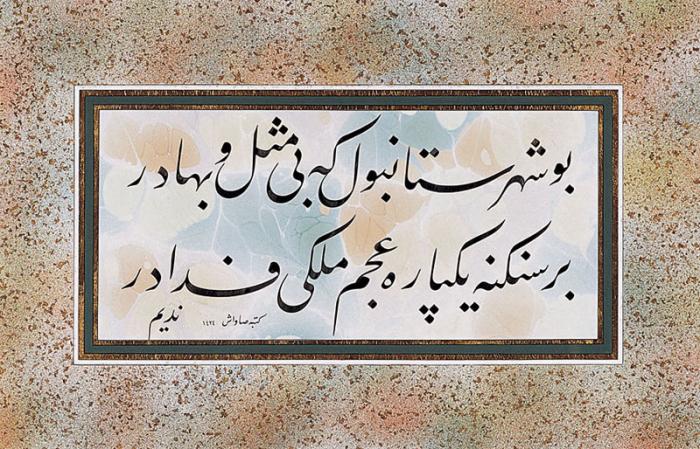 بو شهر ستانبول كه بی مثل و بهادر
بر سنكنه یكپاره عجم ملكی فدادر
ندیم
كتبه صاواش ١٤٢٤